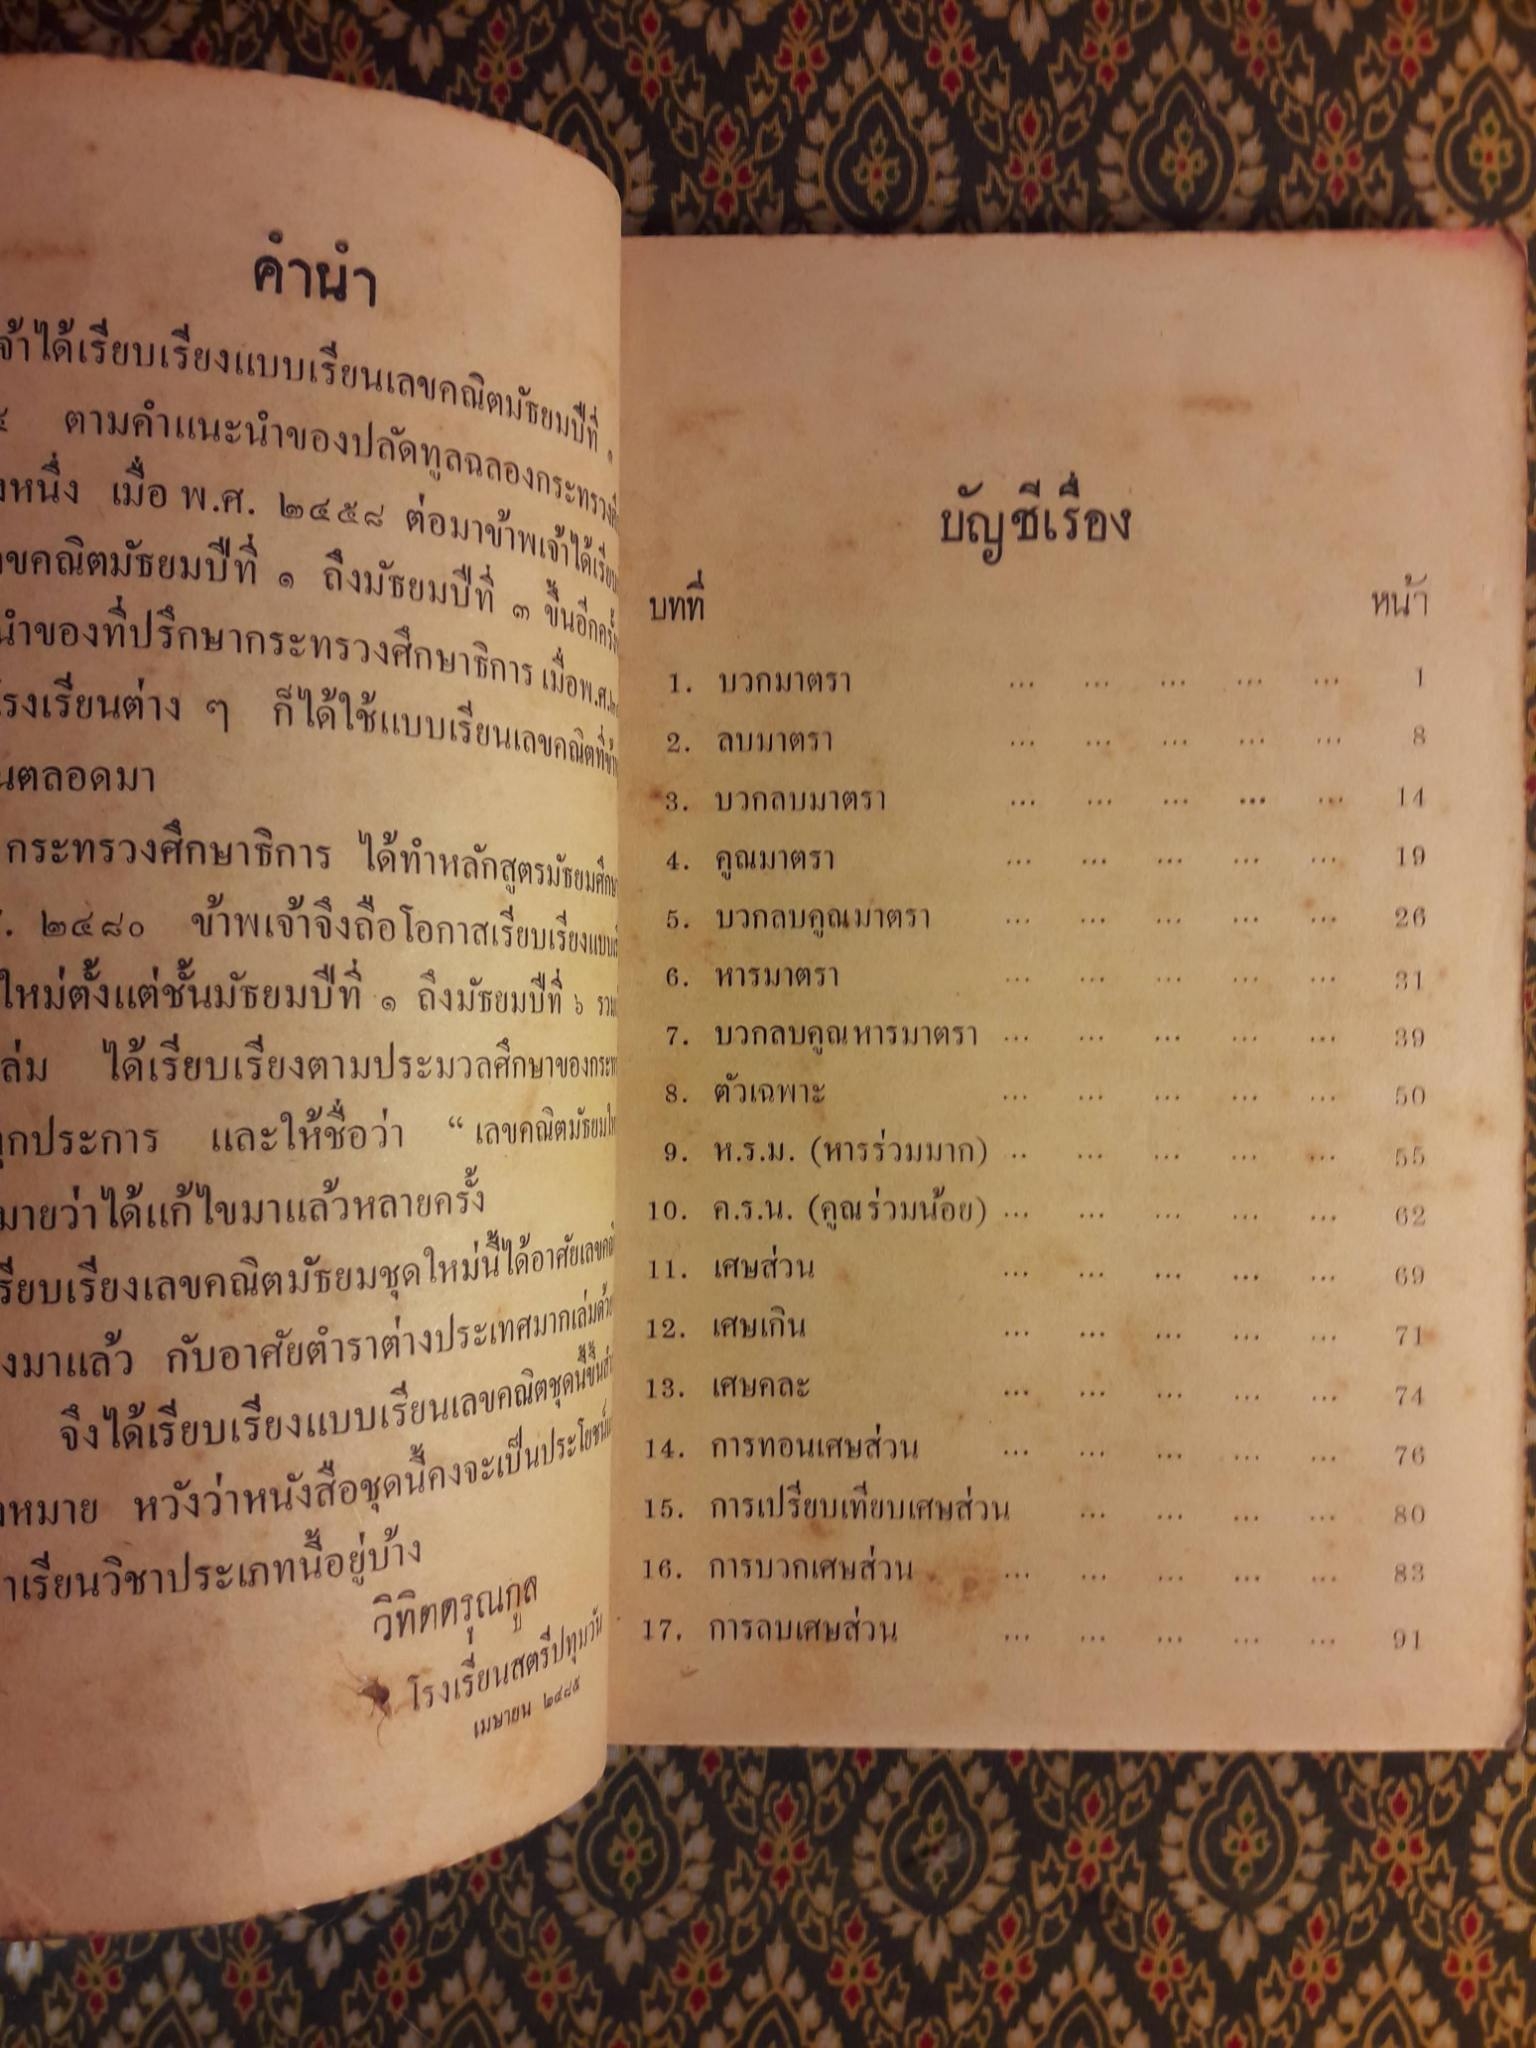 คำนำ
จ้าได้เรียบเรียงแบบเรียนเลขคณิตมัธยมปีที่ ๑
๔ ตามคำแนะนำของปลัดทูลฉลองกระทรวงศึ
งหนึ่ง เมื่อ พ.ศ. ๒๔๕๘ ต่อมาข้าพเจ้าได้เรียบ
ลขคณิตมัธยมปีที่ ๑ ถึงมัธยมปีที่ ๓ ขึ้นอีกครั้ง
นำของที่ปรึกษากระทรวงศึกษาธิการ เมื่อพ.ศ.๒๔
โรงเรียนต่าง ๆ ก็ได้ใช้แบบเรียนเลขคณิตที่ข้าพ
นตลอดมา
กระทรวงศึกษาธิการ ได้ทำหลักสูตรมัธยมศึกษา
. ๒๔๘๐ ข้าพเจ้าจึงถือโอกาสเรียบเรียงแบบเรี
ใหม่ตั้งแต่ชั้นมัธยมปีที่ ๑ ถึงมัธยมปีที่ ๖ รวม
ล่ม ได้เรียบเรียงตามประมวลศึกษาของกระท
ทุกประการ และให้ชื่อว่า “ เลขคณิตมัธยมให
มายว่าได้แก้ไขมาแล้วหลายครั้ง
เรียบเรียงเลขคณิตมัธยมชุดใหม่นี้ได้อาศัยเลขคณิ
งมาแล้ว กับอาศัยตำราต่างประเทศมากเล่มด้วย
จึงได้เรียบเรียงแบบเรียนเลขคณิตชุดนี้ขึ้นสำ
หมาย หวังว่าหนังสือชุดนี้คงจะเป็นประโยชน์แ
าเรียนวิชาประเภทนี้อยู่บ้าง
วิทิตดรุณกูล
โรงเรียนสตรีปทุมวัน
เมษายน ๒๔๘๕
บัญชีเรื่อง
บทที่ หน้า
1. บวกมาตรา ... ... ... ... ... 1
2. ลบมาตรา ... ... ... ... ... 8
3. บวกลบมาตรา ... ... ... ... ... 14
4. คูณมาตรา ... ... ... ... ... 19
5. บวกลบคูณมาตรา ... ... ... ... ... 26
6. หารมาตรา ... ... ... ... ... 31
7. บวกลบคูณหารมาตรา ... ... ... ... ... 39
8. ตัวเฉพาะ ... ... ... ... ... 50
9. ห.ร.ม. (หารร่วมมาก) .. ... ... ... ... 55
10. ค.ร.น. (คูณร่วมน้อย) ... ... ... ... ... 62
11. เศษส่วน ... ... ... ... ... 69
12. เศษเกิน ... ... ... ... ... 71
13. เศษคละ ... ... ... ... ... 74
14. การทอนเศษส่วน ... ... ... ... ... 76
15. การเปรียบเทียบเศษส่วน ... ... ... ... 80
16. การบวกเศษส่วน ... ... ... ... ... 83
17. การลบเศษส่วน ... ... ... ... ... 91